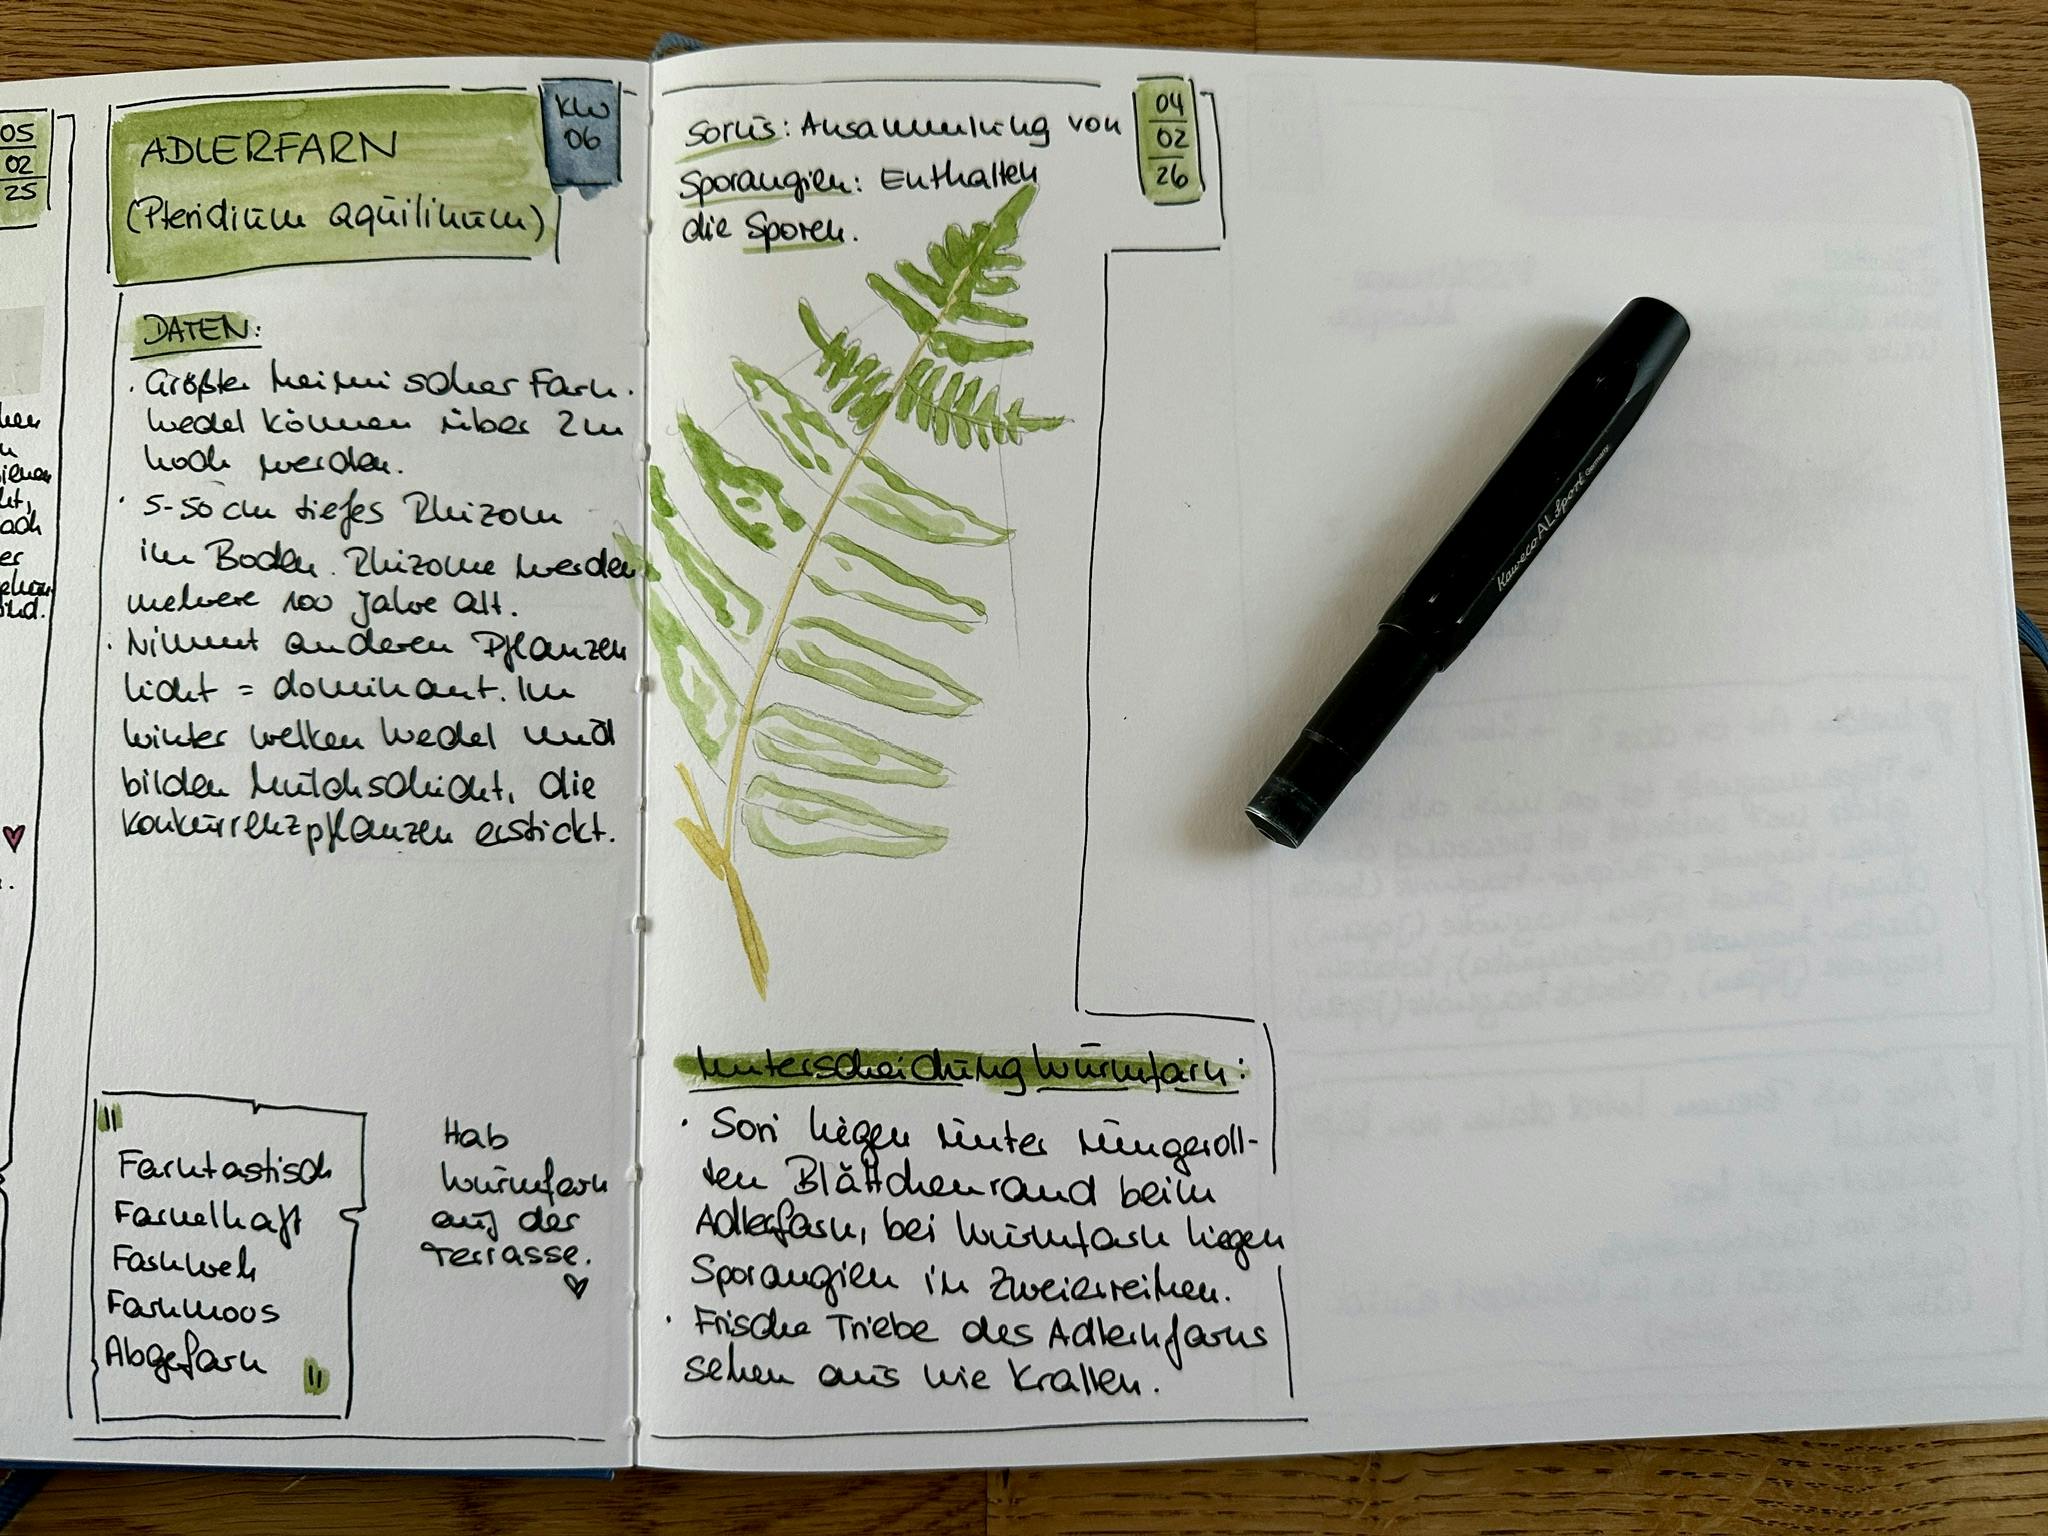 05
02
25
ADLERFARN
(Pteridium aquilinum)
KW
06
DATEN:
· Größter heimischer Farn.
Wedel können über 2m
hoch werden.
· 5-50cm tiefes Rhizom
im Boden. Rhizome werden
mehrere 100 Jahre alt.
· Nimmt anderen Pflanzen
Licht = dominant. Im
Winter welken Wedel und
bilden Mulchschicht, die
Konkurrenzpflanzen erstickt.
"
Farntastisch
Farnelhaft
Farnweh
Farnmoos
Abgefarn
"
Hab
Wurmfarn
auf der
Terrasse.
Sorus: Ansammlung von
Sporangien: Enthalten
die Sporen.
04
02
26
Unterscheidung Wurmfarn:
· Sori liegen unter umgeroll-
ten Blättchenrand beim
Adlerfarn, bei Wurmfarn liegen
Sporangien in Zweierreihen.
· Frische Triebe des Adlernfarns
sehen aus wie Krallen.
Kaweco AL Sport Germany